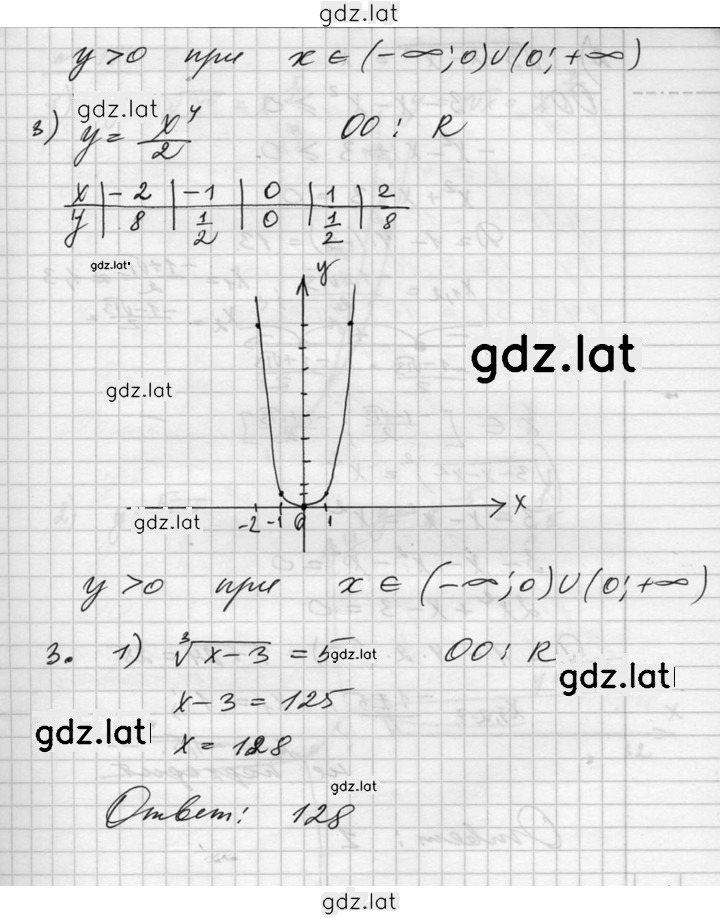 gdz.lat
y>0 при x ∈ (-∞; 0)∪(0; +∞)
gdz.lat
3) y = x⁴/2 ОО: R
x | -2 | -1 | 0 | 1 | 2
y | 8 | 1/2 | 0 | 1/2 | 8
gdz.lat
y
gdz.lat
gdz.lat
x
gdz.lat -2 -1 0 1
y>0 при x ∈ (-∞; 0)∪(0; +∞)
3. 1) ∛(x-3) = 5 gdz.lat ОО: R
gdz.lat
x-3 = 125
gdz.lat
x = 128
gdz.lat
Ответ: 128
gdz.lat